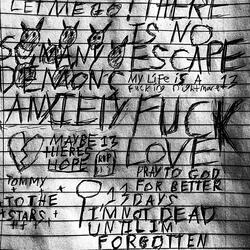 LET ME GO! THERE
IS NO
SO MANY ESCAPE
DEMON'S
MY LIFE IS A
FUCKING NIGHTMARE
ANXIETY FUCK
LOVE
MAYBE
THERES
HOPE
RIP
TOMMY
TO THE
STARS
PRAY TO GOD
FOR BETTER
DAYS
I'M NOT DEAD
UNTIL IM
FORGOTTEN